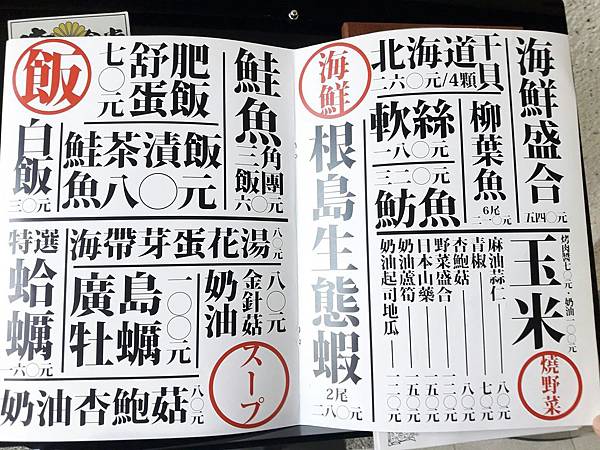 海鮮盛合
五四〇元
北海道干貝
二六〇元/4顆
海鮮
柳葉魚
6尾
軟絲
一八〇元
三二〇元
魴魚
根島生態蝦
2尾
二八〇元
玉米
烤肉醬七〇元・奶油一〇〇元
燒野菜
麻油蒜仁 八〇元
青椒 七〇元
杏鮑菇 八〇元
野菜盛合
日本山藥 一五〇元
奶油蘆筍 一五〇元
奶油起司地瓜 一二〇元
飯
舒肥蛋飯
七〇元
鮭魚三角飯團
六〇元
白飯
三〇元
鮭魚茶漬飯
八〇元
海帶芽蛋花湯
八〇元
特選蛤蠣
一六〇元
廣島牡蠣
一〇〇元
奶油金針菇
八〇元
奶油杏鮑菇
八〇元
スープ